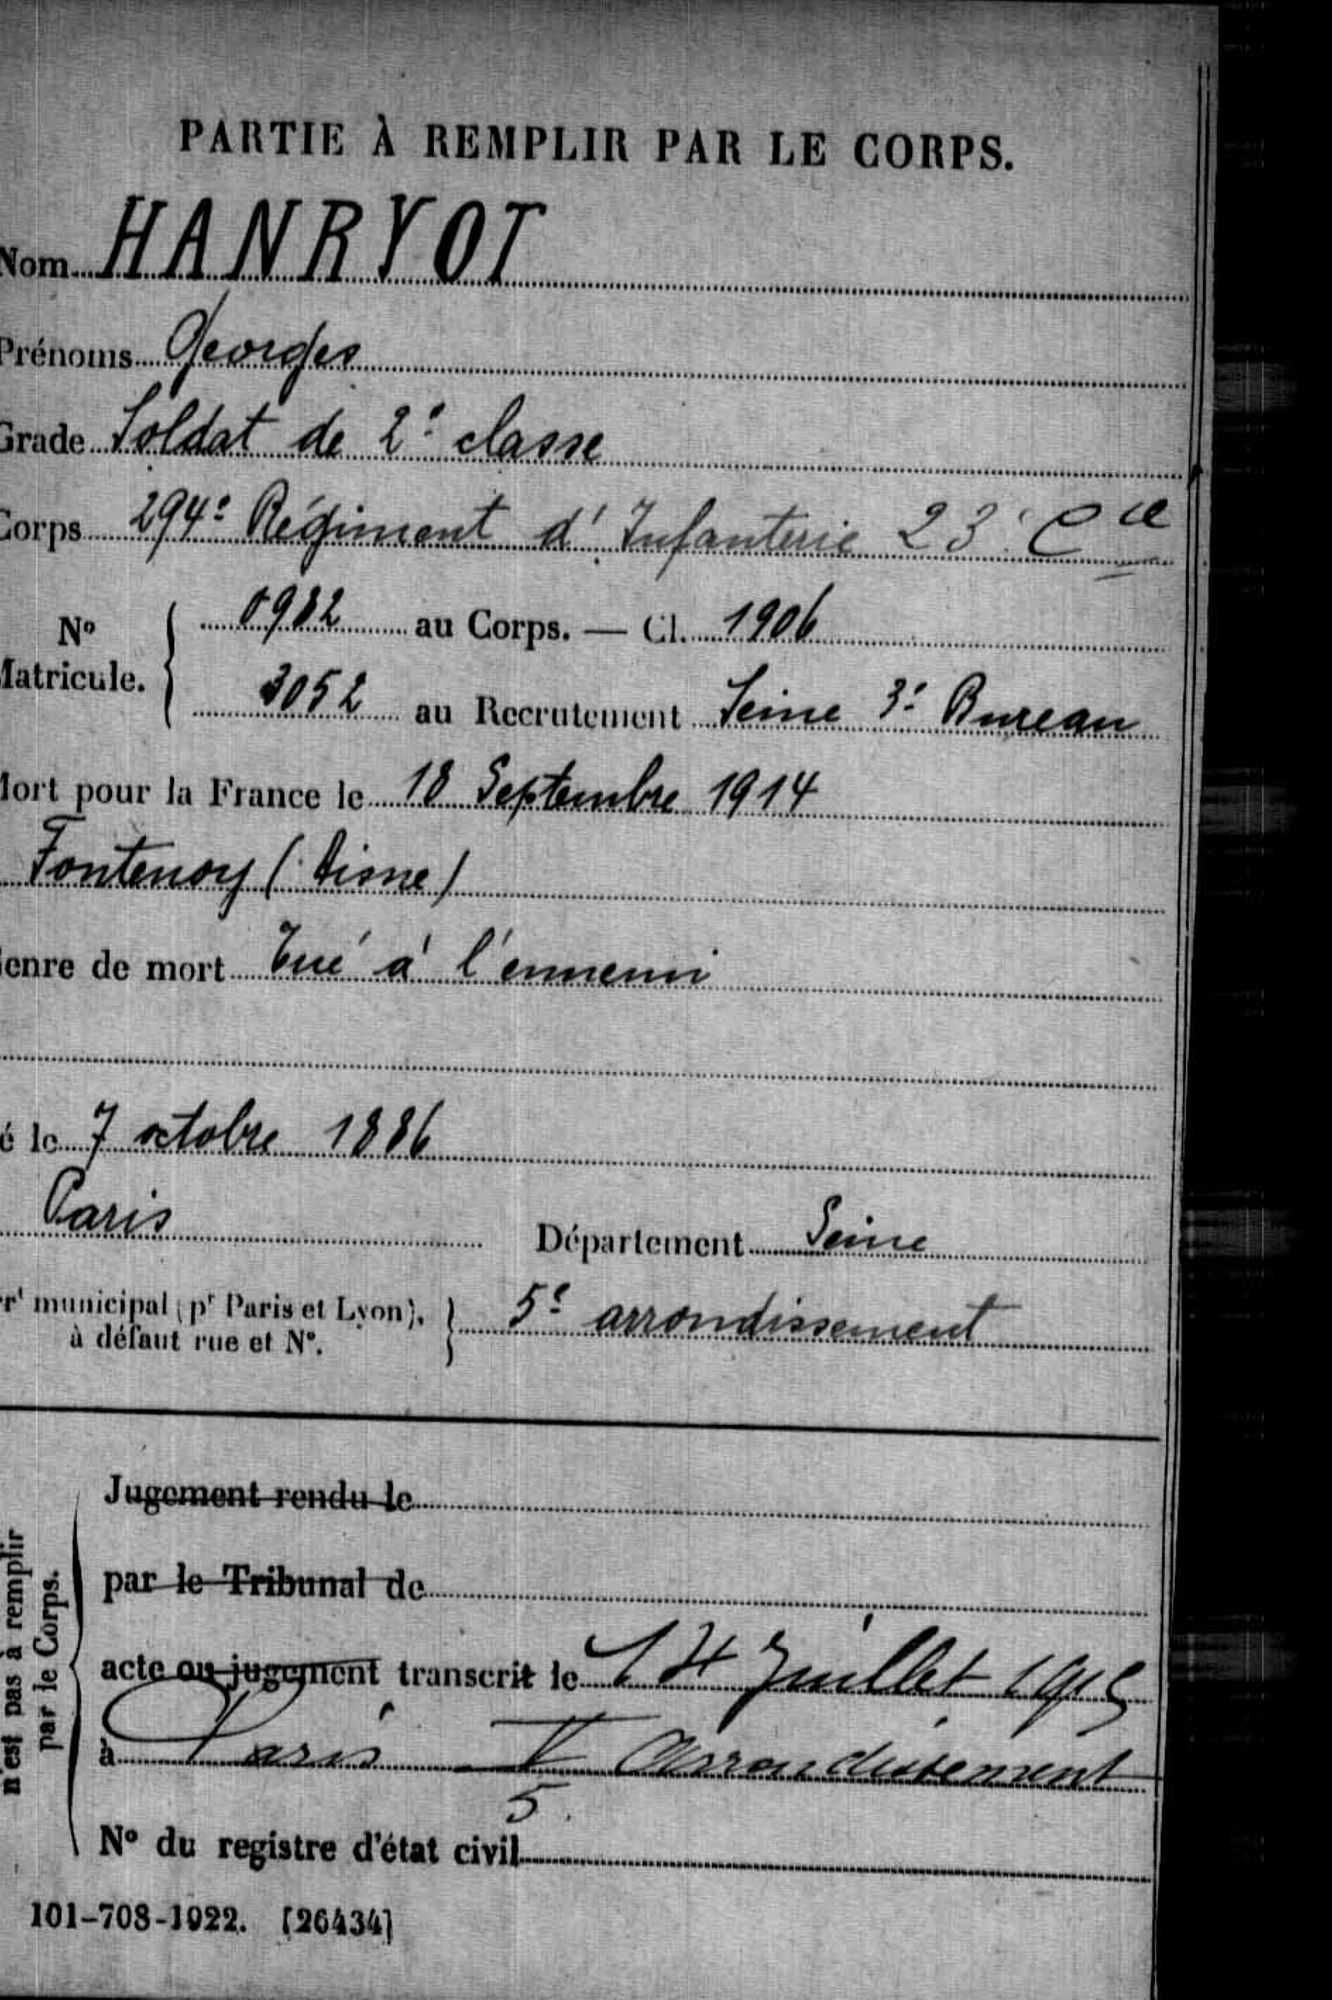 PARTIE À REMPLIR PAR LE CORPS.
Nom HANRYOT
Prénoms Georges
Grade Soldat de 2e classe
Corps 294e Régiment d'Infanterie 23e Cie
No Matricule. { 0982 au Corps. — Cl. 1906
3052 au Recrutement Seine 3e Bureau
Mort pour la France le 18 Septembre 1914
Fontenoy (Aisne)
Genre de mort Tué à l'ennemi
é le 7 octobre 1886
Paris Département Seine
rt municipal (pr Paris et Lyon), à défaut rue et No. } 5e arrondissement
Jugement rendu le
par le Tribunal de
acte ou jugement transcrit le 14 Juillet 1915
à Paris V Arrondissement
5
No du registre d'état civil
n'est pas à remplir
par le Corps.
101-708-1922. [26434]